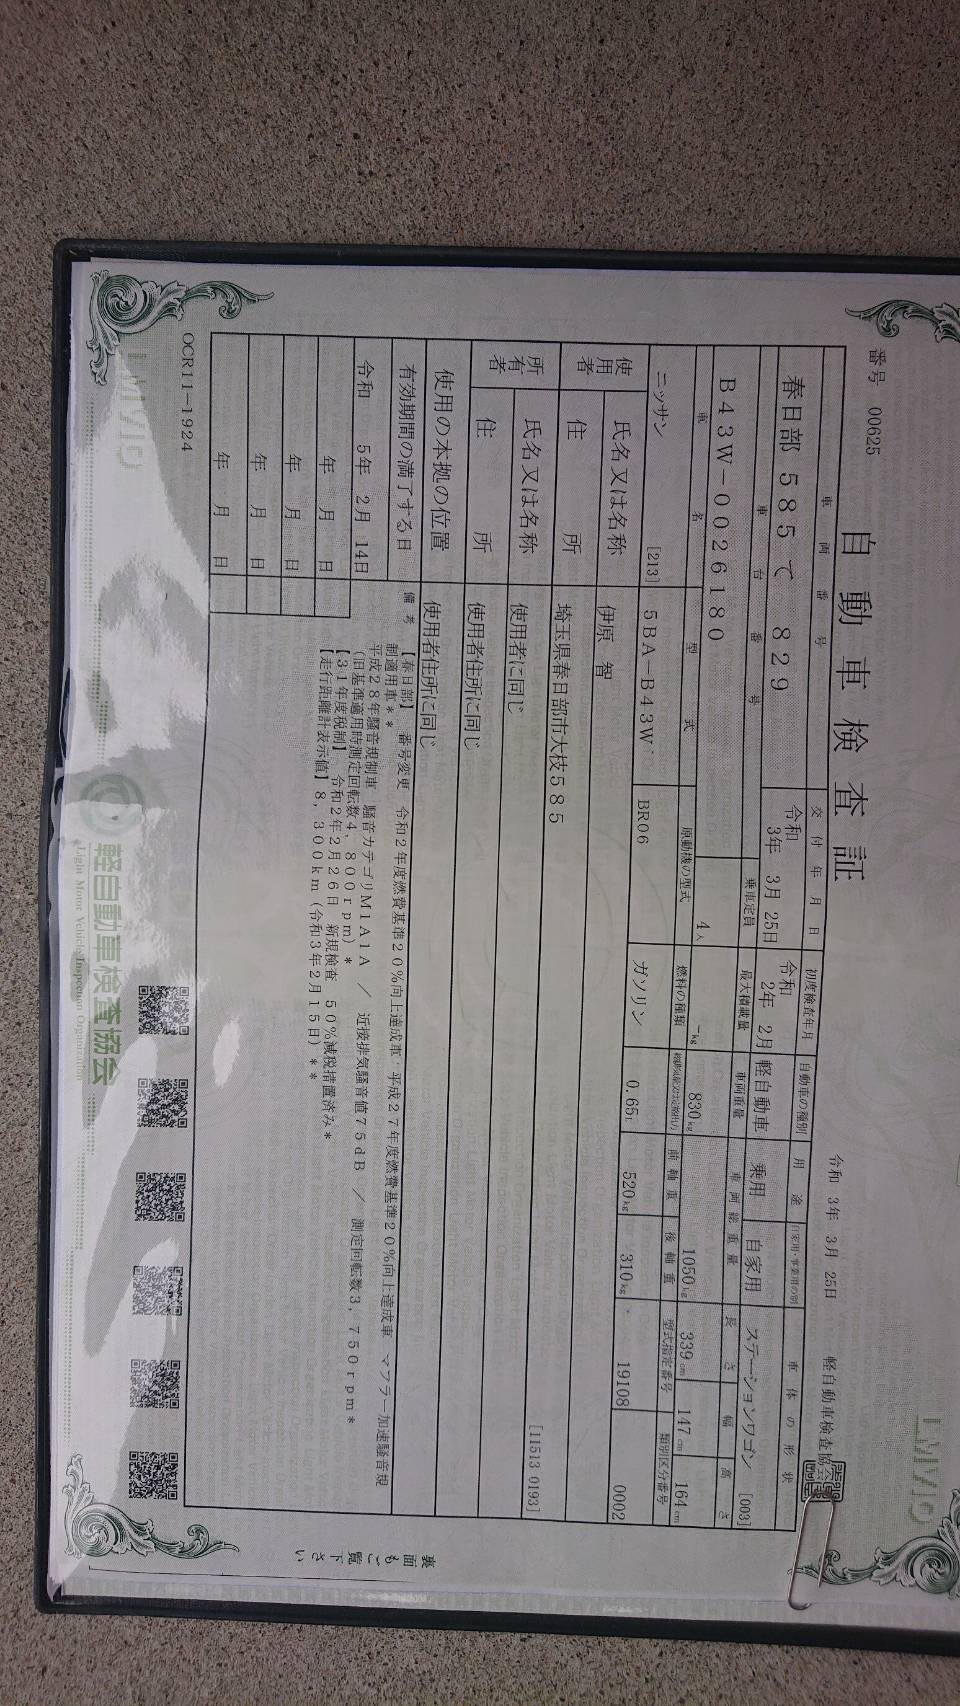 番号 00625
自動車検査証
令和 3年 3月 25日 軽自動車検査協会
車両番号 交付年月日 初度検査年月 自動車の種別 用途 自家用・事業用の別 車体の形状
春日部 585 て 829 令和 3年 3月 25日 令和 2年 2月 軽自動車 乗用 自家用 ステーションワゴン [003]
車台番号 乗車定員 最大積載量 車両重量 車両総重量 長さ 幅 高さ
B43W-0026180 4人 -kg 830kg 1050kg 339cm 147cm 164cm
車名 型式 原動機の型式 燃料の種類 総排気量又は定格出力 前軸重 後軸重 型式指定番号 類別区分番号
ニッサン [213] 5BA-B43W BR06 ガソリン 0.65L 520kg 310kg 19108 0002
使用者 氏名又は名称 伊原 智
住所 埼玉県春日部市大枝585
[11513 0193]
所有者 氏名又は名称 使用者に同じ
住所 使用者住所に同じ
使用の本拠の位置 使用者住所に同じ
有効期間の満了する日 備考
令和 5年 2月 14日
年 月 日
年 月 日
年 月 日
年 月 日
【春日部】 番号変更 令和2年度燃費基準20%向上達成車・平成27年度燃費基準20%向上達成車 マフラー加速騒音規
制適用車**
平成28年騒音規制車 騒音カテゴリM1A1A / 近接排気騒音値75dB / 測定回転数3,750rpm*
(旧基準適用時測定回転数4,800rpm)*
【31年度税制】 令和2年2月26日 新規検査 50%減税措置済み*
【走行距離計表示値】8,300km(令和3年2月15日)**
OCR11-1924
裏面もご覧下さい
軽自動車検査協会
Light Motor Vehicle Inspection Organization
LMVIO
LMVIO